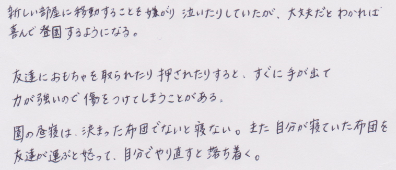 新しい部屋に移動することを嫌がり泣いたりしていたが、大丈夫だとわかれば
喜んで登園するようになる。
友達におもちゃを取られたり押されたりすると、すぐに手が出て
力が強いので傷をつけてしまうことがある。
園の昼寝は、決まった布団でないと寝ない。また自分が寝ていた布団を
友達が運ぶと怒って、自分でやり直すと落ち着く。